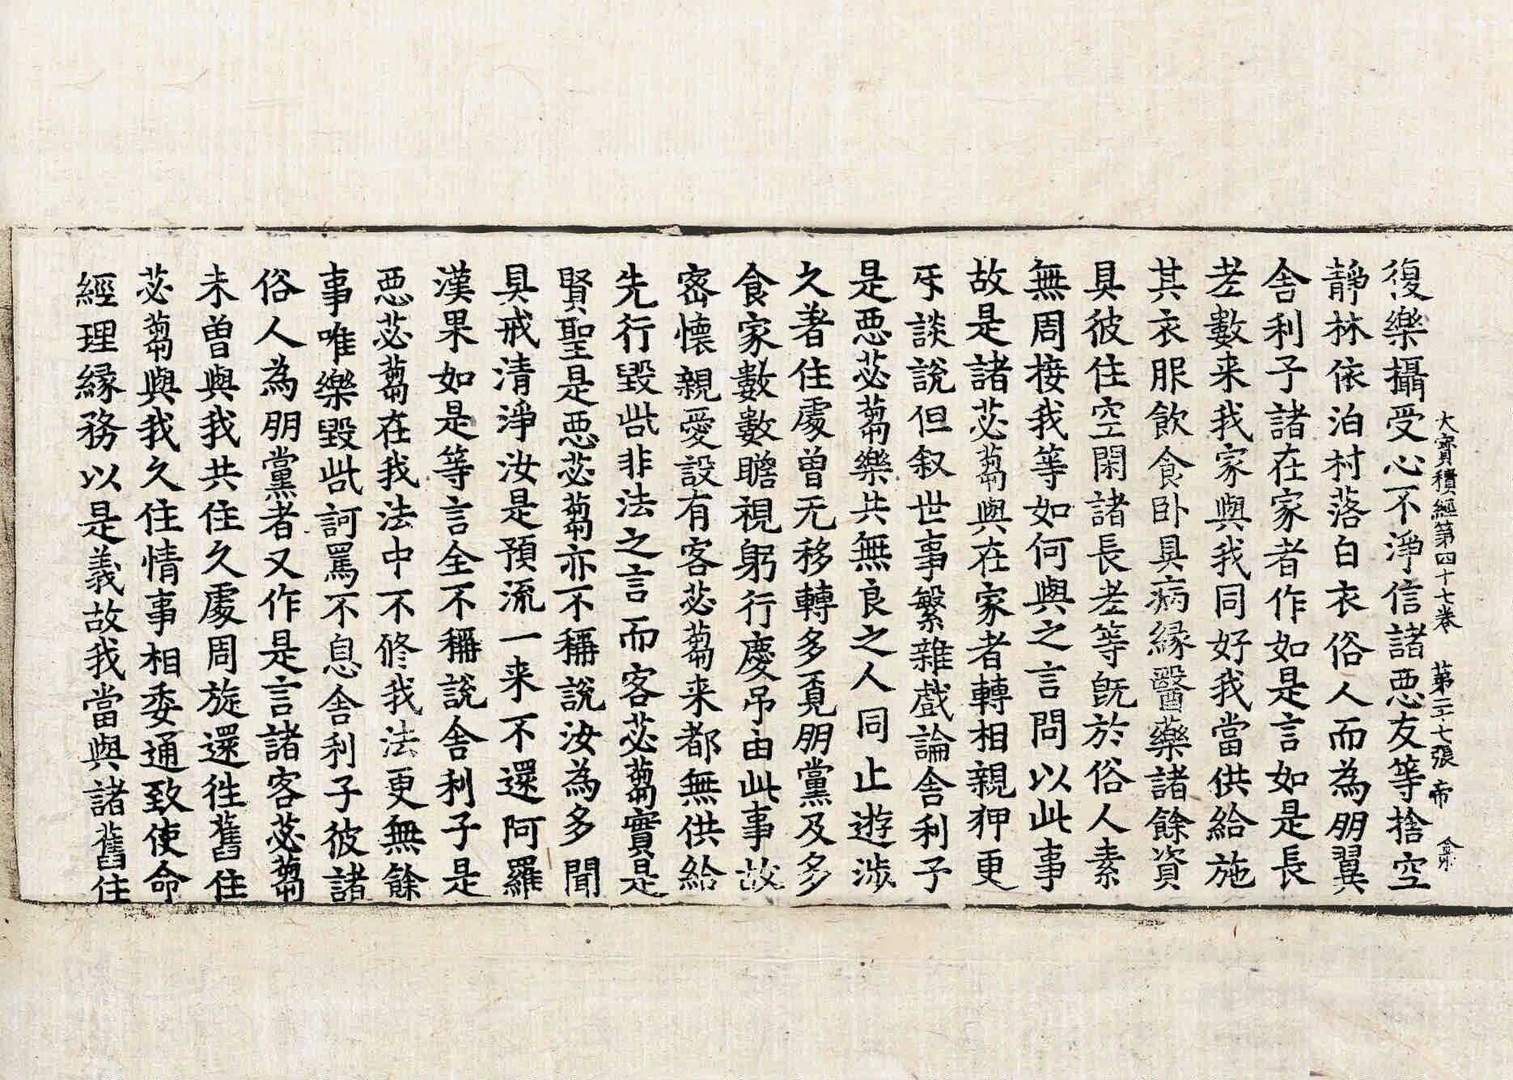 大寳積經第四十七卷　第二十七張　帝
復樂攝受心不淨信諸惡友等捨空
靜林依泊村落白衣俗人而為朋翼
舎利子諸在家者作如是言如是長
老數来我家與我同好我當供給施
其衣服飲食卧具病緣醫藥諸餘資
具彼住空閑諸長老等旣於俗人素
無周接我等如何與之言問以此事
故是諸苾蒭與在家者轉相親狎更
㸦談說但叙世事繁雜戲論舎利子
是惡苾蒭樂共無良之人同止遊涉
久著住處曾无移轉多覔朋黨及多
食家數數瞻視躬行慶吊由此事故
密懷親愛設有客苾蒭来都無供給
先行毀呰非法之言而客苾蒭實是
賢聖是惡苾蒭亦不稱說汝為多聞
具戒清淨汝是預流一来不還阿羅
漢果如是等言全不稱說舎利子是
惡苾蒭在我法中不修我法更無餘
事唯樂毀呰訶罵不息舎利子彼諸
俗人為朋黨者又作是言諸客苾蒭
未曾與我共住久處周旋還徃舊住
苾蒭與我久住情事相委通致使命
經理緣務以是義故我當與諸舊住